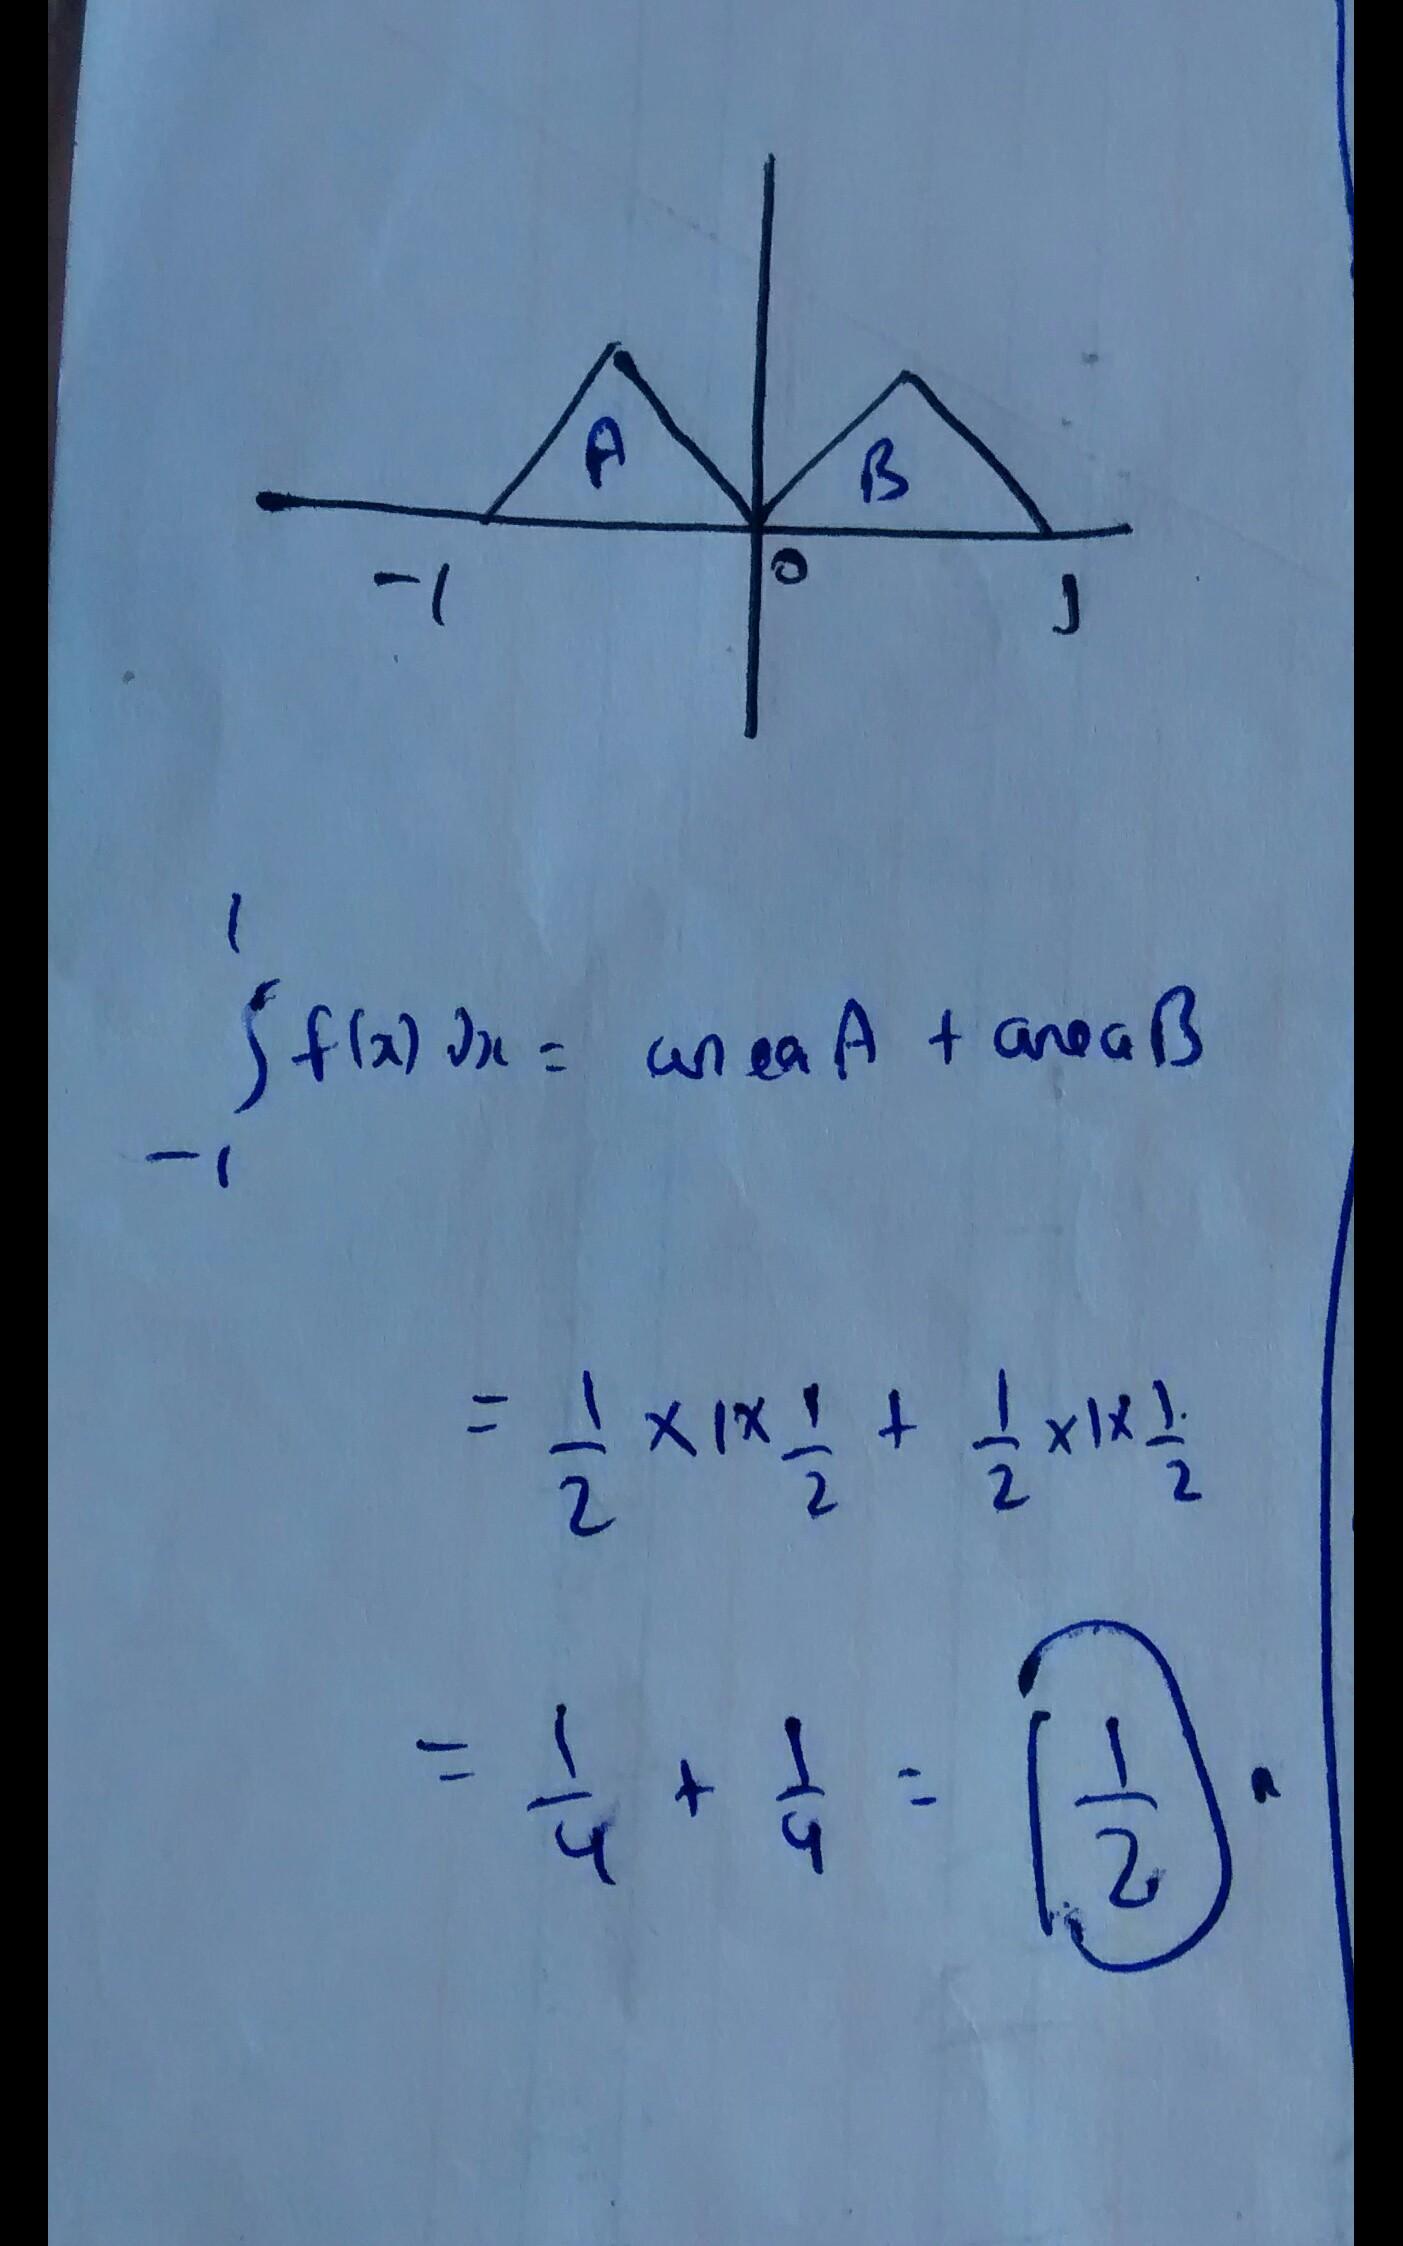 A B
-1 0 1
1
∫ f(x) dx = area A + area B
-1
= 1/2 × 1 × 1/2 + 1/2 × 1 × 1/2
= 1/4 + 1/4 = 1/2